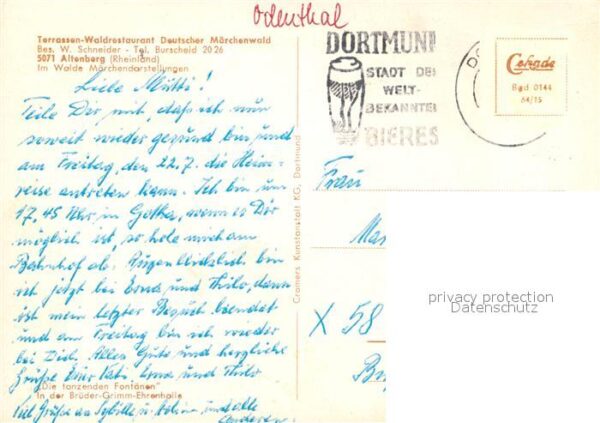 Odenthal
Terrassen-Waldrestaurant Deutscher Märchenwald
Bes. W. Schneider - Tel. Burscheid 20 26
5071 Altenberg (Rheinland)
Im Walde Märchendarstellungen
Liebe Mutti!
Teile Dir mit, daß ich nun
soweit wieder gesund bin, und
am Freitag, den 22.7. die Heim-
reise antreten kann. Ich bin um
17.45 Uhr in Gotha, wenn es Dir
möglich ist, so hole mich am
Bahnhof ab. Augenblicklich bin
ich jetzt bei Erna und Thilo, dann
ist mein letzter Besuch beendet
und am Freitag bin ich wieder
bei Dir. Alles Gute und herzliche
Grüße Eure Kati, Erna und Thilo
"Die tanzenden Fontänen"
In der Brüder-Grimm-Ehrenhalle
Viel Grüße an Sybille u. und alle
anderen
Cramers Kunstanstalt KG, Dortmund
DORTMUND
STADT DER
WELT-
BEKANNTEN
BIERES
DO
Cekade
Bad 0144
64/15
Frau
Mar
X 58
privacy protection
Datenschutz